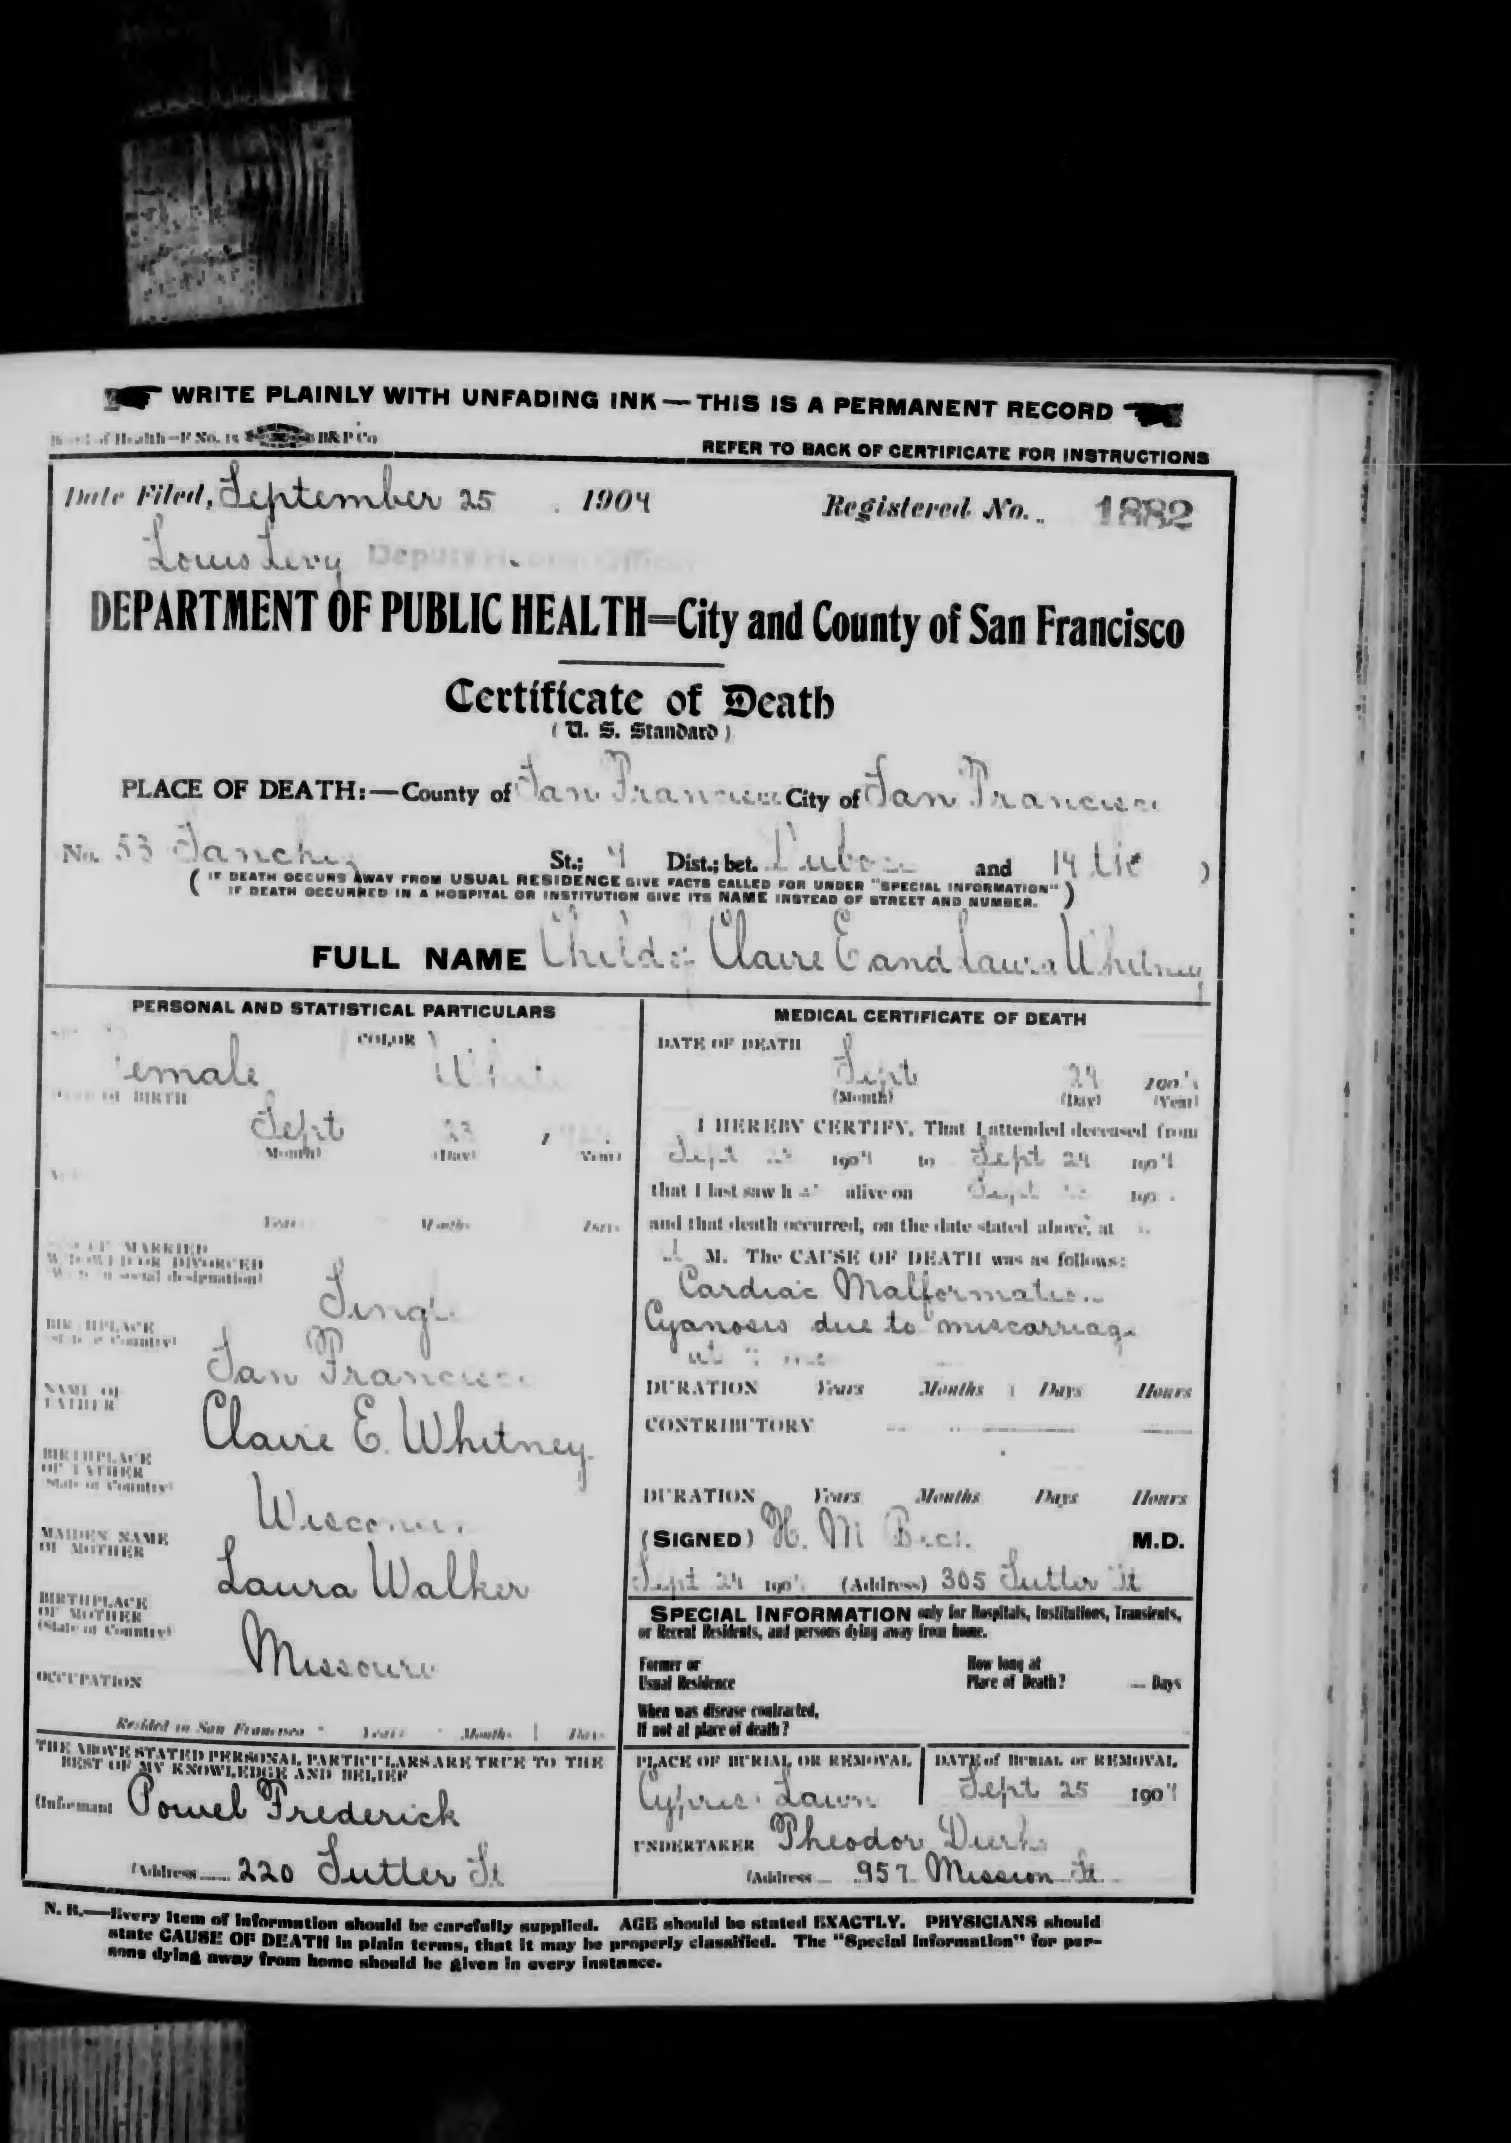 WRITE PLAINLY WITH UNFADING INK — THIS IS A PERMANENT RECORD
Board of Health—F No. 18 B&P Co
REFER TO BACK OF CERTIFICATE FOR INSTRUCTIONS
Date Filed, September 25 1904 Registered No. 1882
Louis Levy Deputy Health Officer
DEPARTMENT OF PUBLIC HEALTH=City and County of San Francisco
Certificate of Death
( U. S. Standard )
PLACE OF DEATH:—County of San Francisco City of San Francisco
No. 53 Sanchez St.; 4 Dist.; bet. Duboce and 14 th )
( IF DEATH OCCURS AWAY FROM USUAL RESIDENCE GIVE FACTS CALLED FOR UNDER "SPECIAL INFORMATION"
IF DEATH OCCURRED IN A HOSPITAL OR INSTITUTION GIVE ITS NAME INSTEAD OF STREET AND NUMBER. )
FULL NAME Child of Claire E and Laura Whitney
PERSONAL AND STATISTICAL PARTICULARS
COLOR
Female White
DATE OF BIRTH
Sept 23
(Month) (Day) (Year)
Years Months Days
MARRIED
WIDOWED OR DIVORCED
(Write in social designation)
Single
BIRTHPLACE
(State or Country)
San Francisco
NAME OF
FATHER
Claire E. Whitney
BIRTHPLACE
OF FATHER
(State or Country)
Wisconsin
MAIDEN NAME
OF MOTHER
Laura Walker
BIRTHPLACE
OF MOTHER
(State or Country)
Missouri
OCCUPATION
Resided in San Francisco Years Months Days
THE ABOVE STATED PERSONAL PARTICULARS ARE TRUE TO THE
BEST OF MY KNOWLEDGE AND BELIEF
(Informant Powel Frederick
(Address 220 Sutter St
MEDICAL CERTIFICATE OF DEATH
DATE OF DEATH
Sept 24 1904
(Month) (Day) (Year)
I HEREBY CERTIFY, That I attended deceased from
Sept 1904 to Sept 24 1904
that I last saw h alive on Sept 190
and that death occurred, on the date stated above, at
M. The CAUSE OF DEATH was as follows:
Cardiac Malformation
Cyanosis due to miscarriage
at
DURATION Years Months Days Hours
CONTRIBUTORY
DURATION Years Months Days Hours
(SIGNED) H. M M.D.
Sept 24 1904 (Address) 305 Sutter St
SPECIAL INFORMATION only for Hospitals, Institutions, Transients,
or Recent Residents, and persons dying away from home.
Former or
Usual Residence
How long at
Place of Death? Days
When was disease contracted,
If not at place of death?
PLACE OF BURIAL OR REMOVAL
Cypress Lawn
DATE of BURIAL or REMOVAL
Sept 25 1904
UNDERTAKER Theodor Dierks
(Address 957 Mission St
N. B.—Every item of information should be carefully supplied. AGE should be stated EXACTLY. PHYSICIANS should
state CAUSE OF DEATH in plain terms, that it may be properly classified. The "Special Information" for per-
sons dying away from home should be given in every instance.